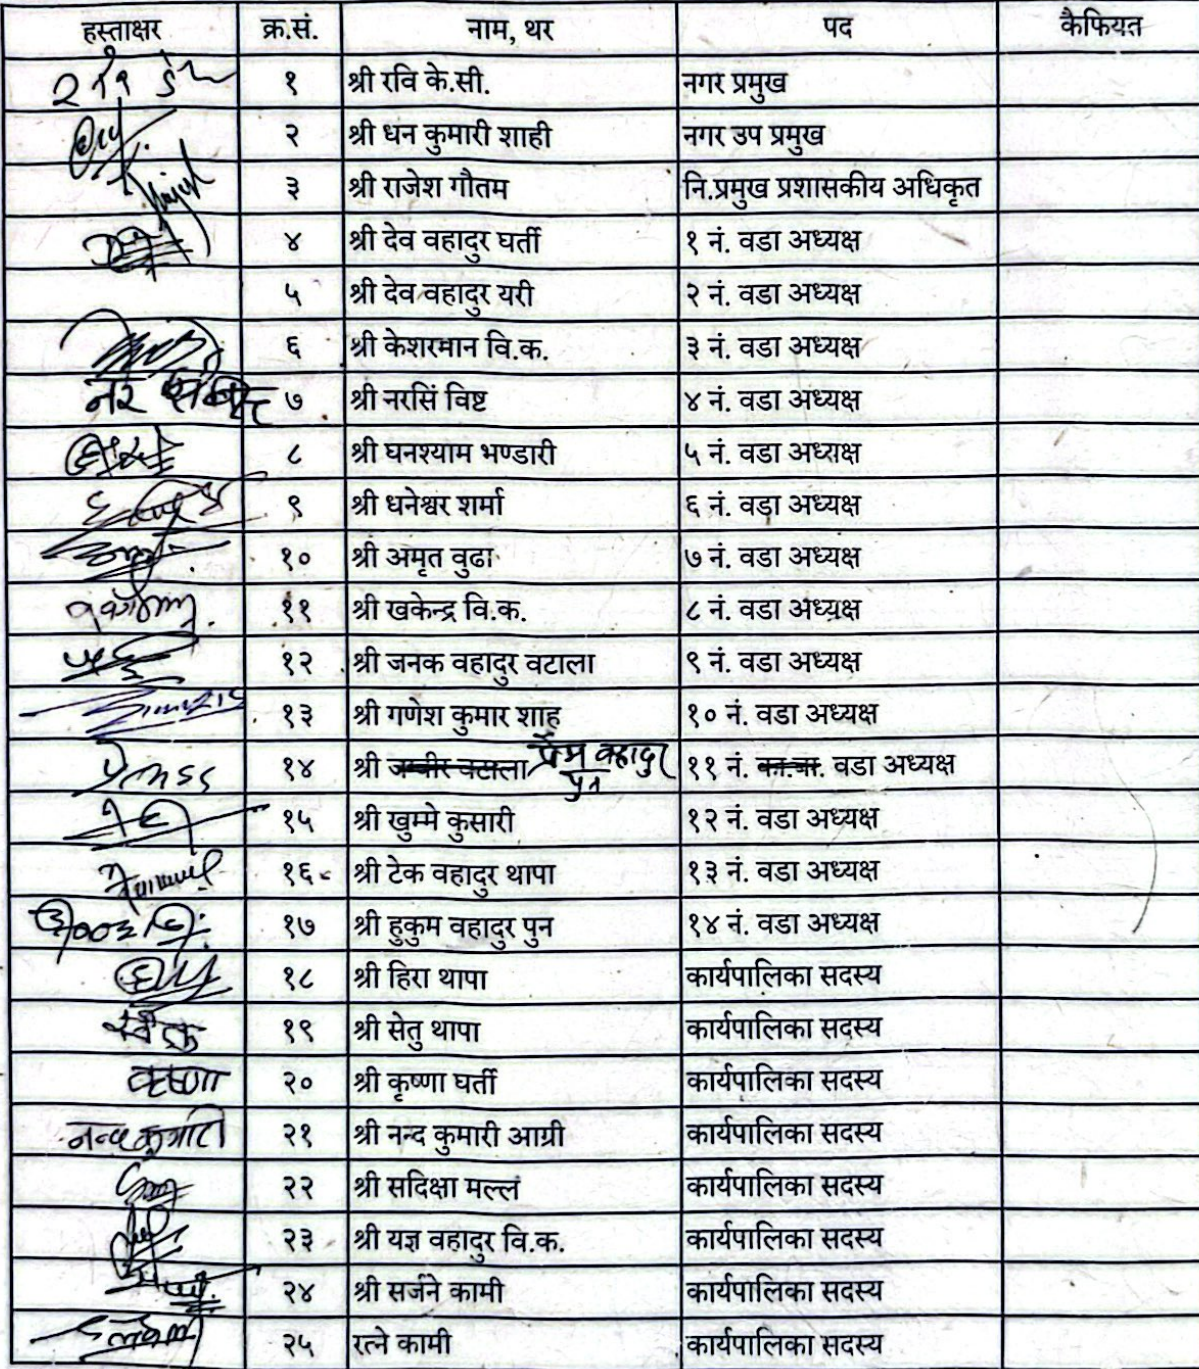 हस्ताक्षर क्र.सं. नाम, थर पद कैफियत
१ श्री रवि के.सी. नगर प्रमुख
२ श्री धन कुमारी शाही नगर उप प्रमुख
३ श्री राजेश गौतम नि.प्रमुख प्रशासकीय अधिकृत
४ श्री देव वहादुर घर्ती १ नं. वडा अध्यक्ष
५ श्री देव वहादुर यरी २ नं. वडा अध्यक्ष
६ श्री केशरमान वि.क. ३ नं. वडा अध्यक्ष
७ श्री नरसिं विष्ट ४ नं. वडा अध्यक्ष
८ श्री घनश्याम भण्डारी ५ नं. वडा अध्यक्ष
९ श्री धनेश्वर शर्मा ६ नं. वडा अध्यक्ष
१० श्री अमृत वुढा ७ नं. वडा अध्यक्ष
११ श्री खकेन्द्र वि.क. ८ नं. वडा अध्यक्ष
१२ श्री जनक वहादुर वटाला ९ नं. वडा अध्यक्ष
१३ श्री गणेश कुमार शाह १० नं. वडा अध्यक्ष
१४ श्री प्रेम वहादुर पुन ११ नं. वडा अध्यक्ष
१५ श्री खुम्मे कुसारी १२ नं. वडा अध्यक्ष
१६ श्री टेक वहादुर थापा १३ नं. वडा अध्यक्ष
१७ श्री हुकुम वहादुर पुन १४ नं. वडा अध्यक्ष
१८ श्री हिरा थापा कार्यपालिका सदस्य
१९ श्री सेतु थापा कार्यपालिका सदस्य
कृष्णा २० श्री कृष्णा घर्ती कार्यपालिका सदस्य
नन्द कुमारी २१ श्री नन्द कुमारी आग्री कार्यपालिका सदस्य
२२ श्री सदिक्षा मल्ल कार्यपालिका सदस्य
२३ श्री यज्ञ वहादुर वि.क. कार्यपालिका सदस्य
२४ श्री सर्जने कामी कार्यपालिका सदस्य
२५ रत्ने कामी कार्यपालिका सदस्य